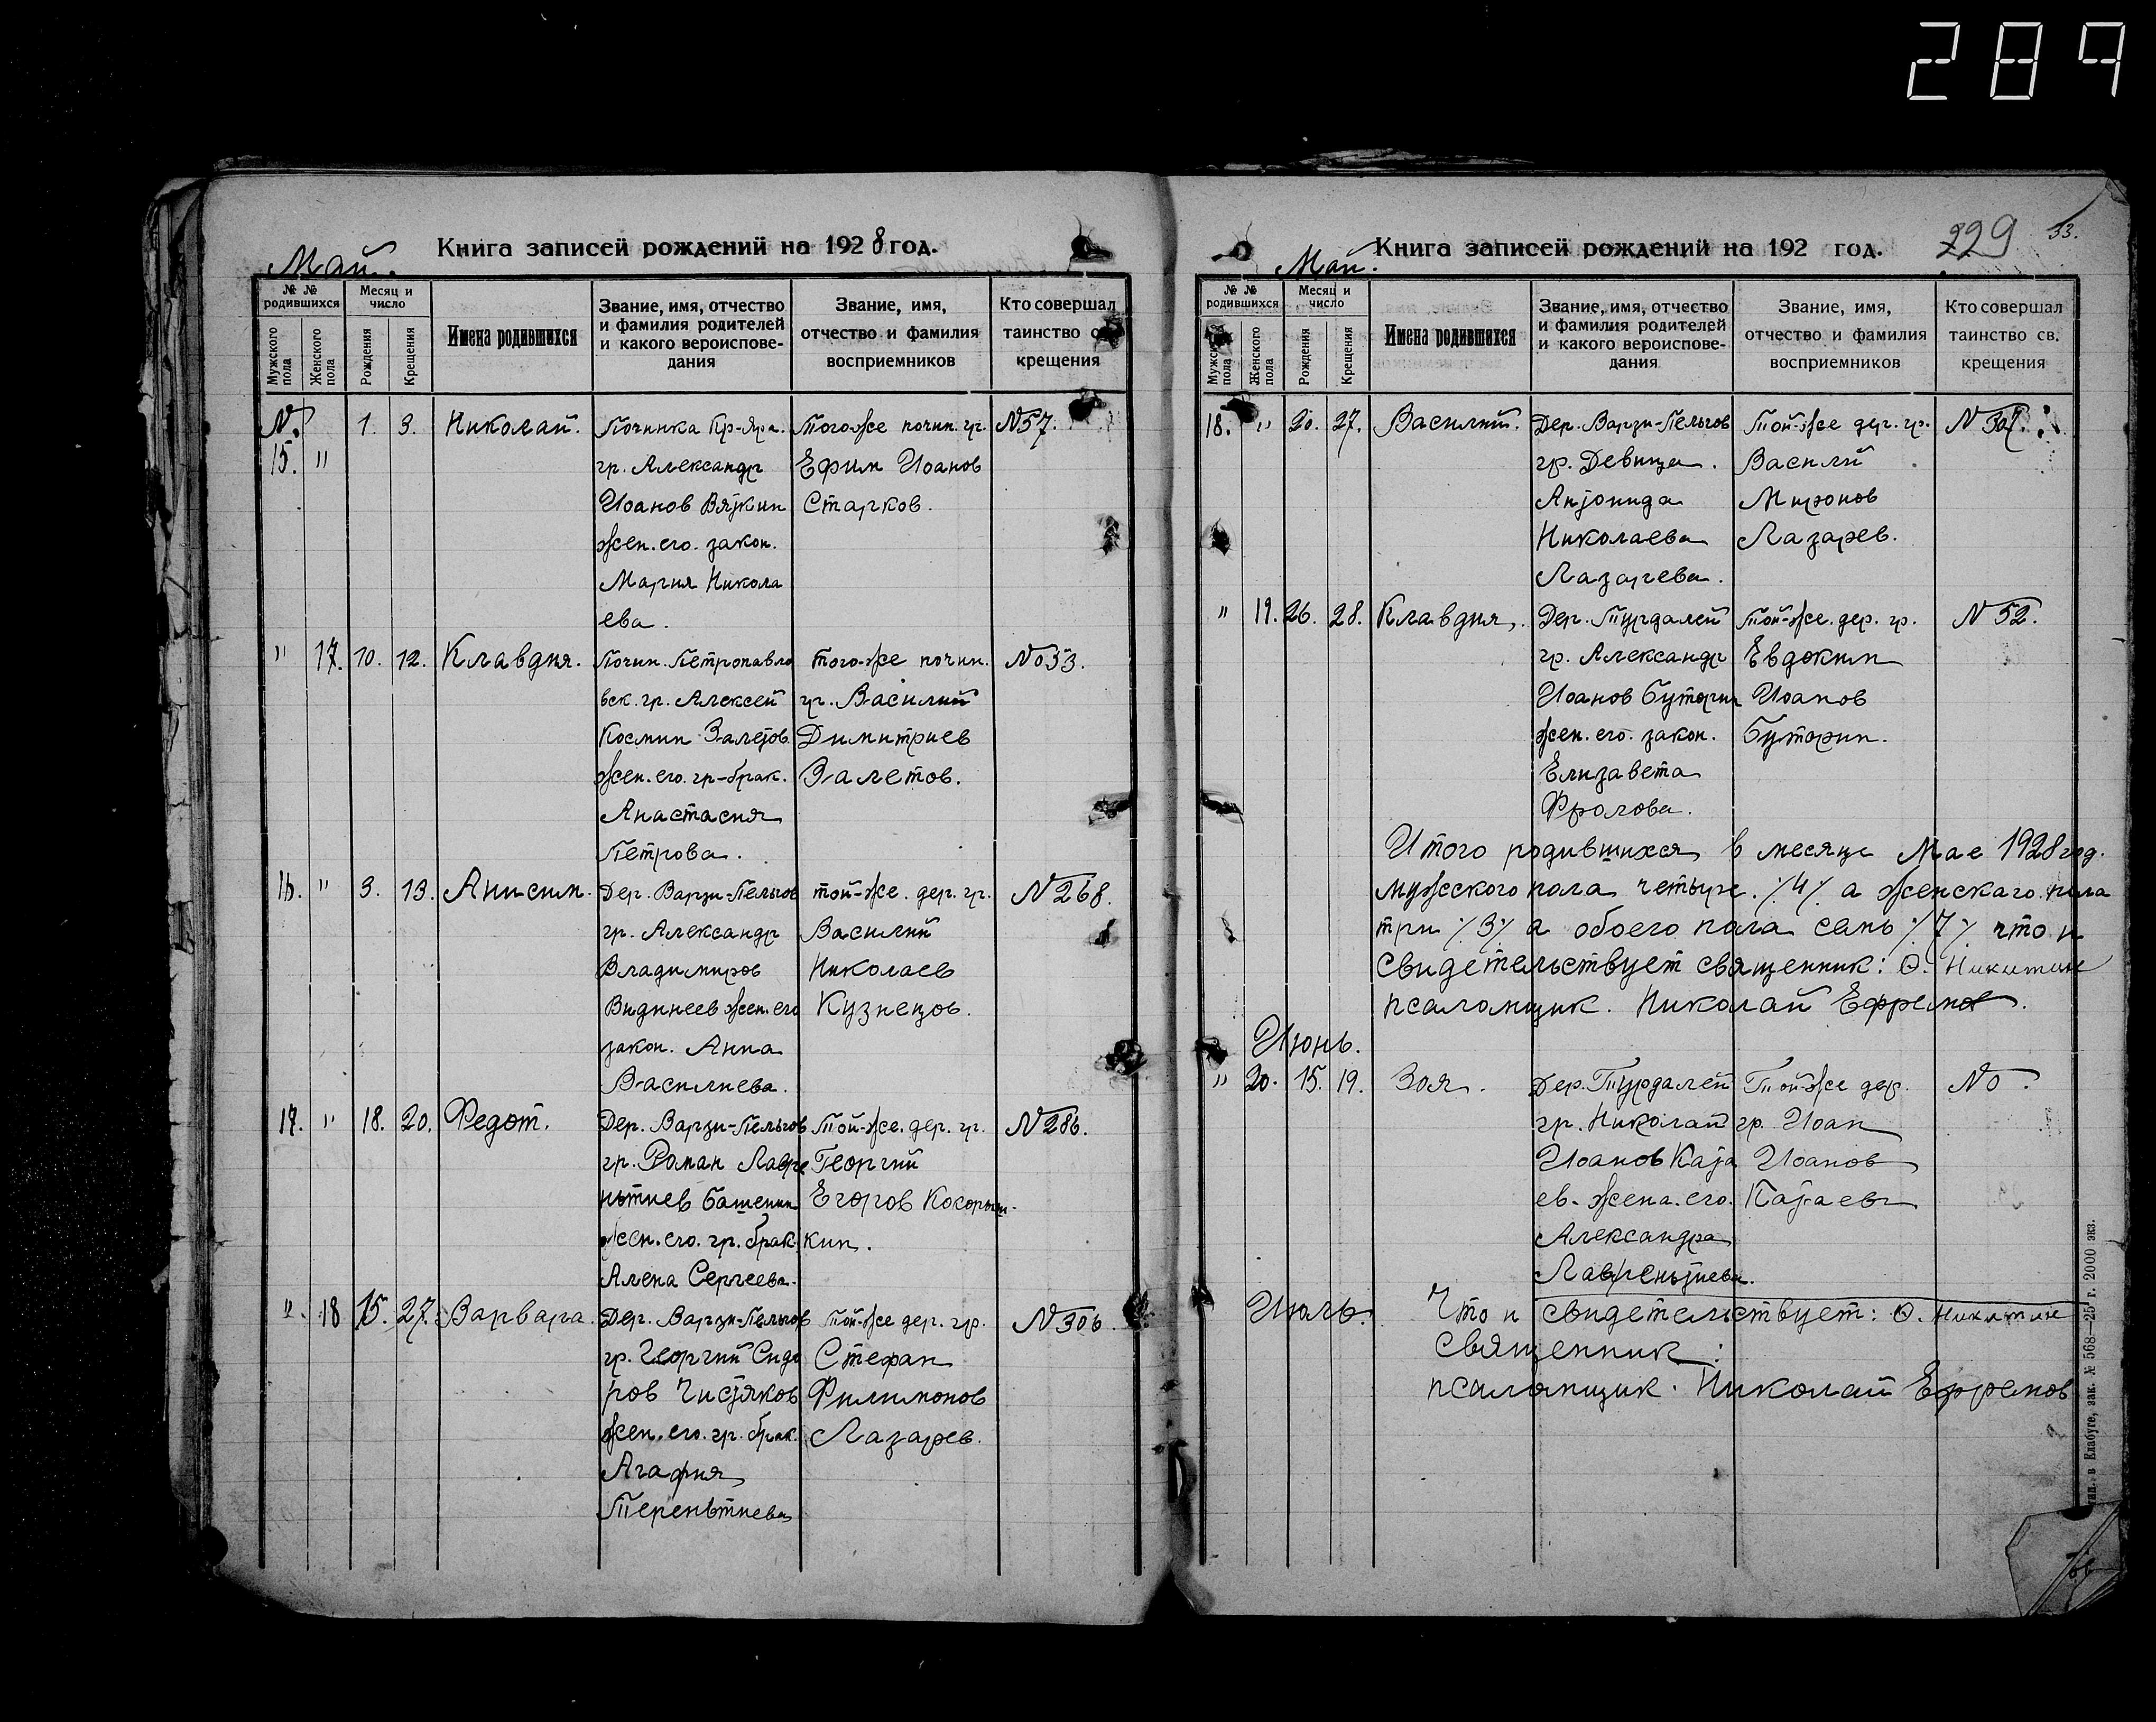 289
Книга записей рождений на 1928 год.
Май.
№ № родившихся
Мужского пола
Женского пола
Месяц и число
Рождения
Крещения
Имена родившихся
Звание, имя, отчество и фамилия родителей и какого вероиспове-дания
Звание, имя, отчество и фамилия восприемников
Кто совершал таинство св. крещения
№ 1. 3. Николай. Починка Кр-Яра. Того-же почин. гр. N57.
15. " гр. Александр Ефим Иоанов
Иоанов Вяткин Старков.
жен. его. закон.
Мария Никола
ева.
" 17. 10. 12. Клавдия. Почин. Петропавло того-же почин. No53.
вск. гр. Алексей гр. Василий
Космин Залетов. Димитриев
жен. его. гр-брак. Залетов.
Анастасия
Петрова.
16. " 3. 13. Анисим. Дер. Варзи-Пельгов той-же. дер. гр. N268.
гр. Александр Василий
Владимиров Николаев
Видинеев жен. его Кузнецов.
закон. Анна
Василиева.
17. " 18. 20. Федот. Дер. Варзи-Пельгов Той-же. дер. гр. N286.
гр. Роман Лавре Георгий
нтиев Башенин Егоров Косорыш-
жен. его. гр. брак. кин.
Алена Сергеева.
" 18 15. 27. Варвара. Дер. Варзи-Пельгов Той-же дер. гр. N306.
гр. Георгий Сидо Стефан
ров Чистяков Филимонов
жен. его. гр. брак. Лазарев.
Агафия
Терентиева
Книга записей рождений на 192 год.
229 53.
Май.
№ № родившихся
Мужского пола
Женского пола
Месяц и число
Рождения
Крещения
Имена родившихся
Звание, имя, отчество и фамилия родителей и какого вероиспове-дания
Звание, имя, отчество и фамилия восприемников
Кто совершал таинство св. крещения
18. " 20. 27. Василий. Дер. Варзи-Пельгов Той-же дер. гр. N307.
гр. Девица. Василий
Антонида Миронов
Николаева Лазарев.
Лазарева.
" 19. 26. 28. Клавдия. Дер. Турдалей Той-же. дер. гр. N52.
гр. Александр Евдоким
Иоанов Буторин Иоанов
жен. его. закон. Буторин.
Елизавета
Фролова.
Итого родившихся в месяце Мае 1928 год.
мужского пола четыре. ./4/. а женскаго. пола
три ./3/. а обоего пола семь ./7/. что и
свидетельствует священник: Ѳ. Никитин
псаломщик. Николай Ефремов.
Июнь.
" 20. 15. 19. Зоя. Дер. Турдалей Той-же дер. No.
гр. Николай гр. Иоан
ИоановКата Иоанов
ев. жена. его. Катаев
Александра
Лаврентиева.
Июль. Что и свидетельствует: Ѳ. Никитин
Священник:
псаломщик. Николай Ефремов
тип. в Елабуге, зак. № 568—25 г. 2000 экз.